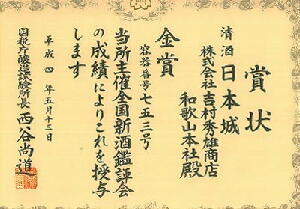 賞状
清酒 日本城
株式会社吉村秀雄商店
和歌山本社殿
金賞
容器番号七五三号
当所主催全国新酒鑑評会
の成績によりこれを授与
します
平成四年五月十三日
国税庁醸造試験所長 西谷尚道